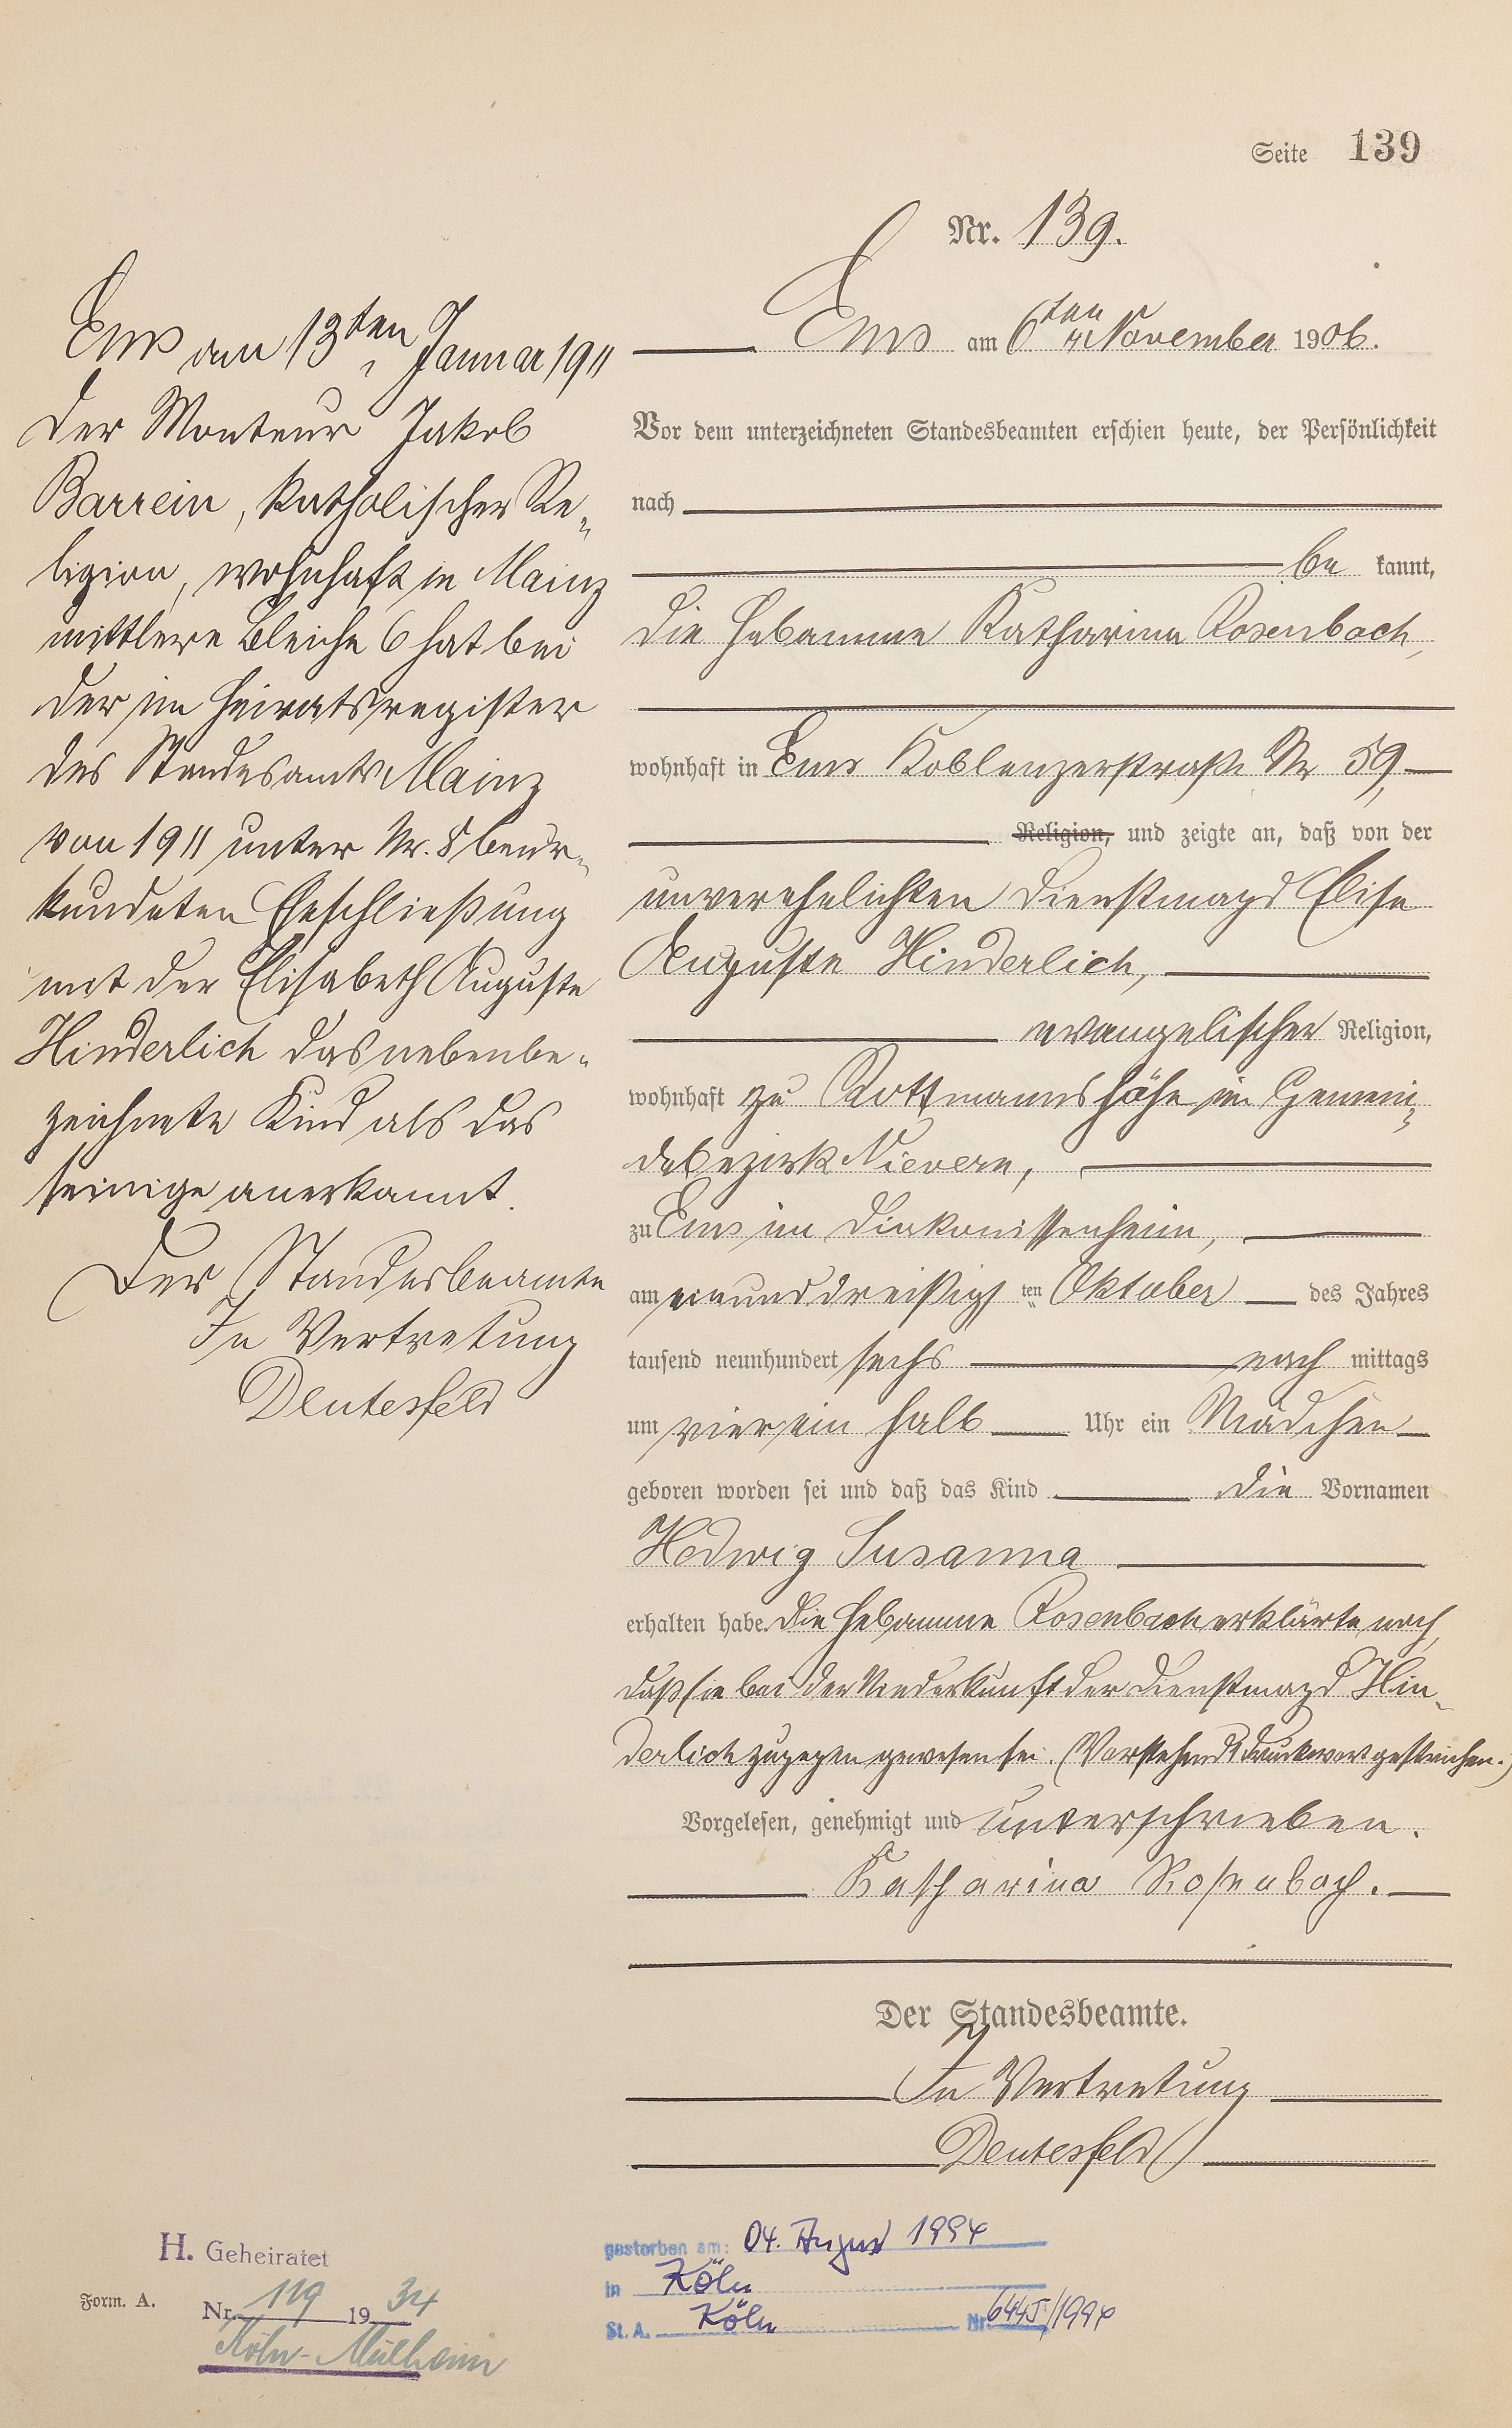 Seite 139
Nr. 139.
Ems am 6ten November 1906.
Vor dem unterzeichneten Standesbeamten erschien heute, der Persönlichkeit
nach
be kannt,
die Hebamme Katharina Rosenbach,
wohnhaft in Ems Koblenzerstraße Nr 59,
Religion, und zeigte an, daß von der
unverehelichten Dienstmagd Elise
Auguste Hinderlich,
evangelischer Religion,
wohnhaft zu Rottmannshöhe im Gemein-
debezirk Nievern,
zu Ems im Diakonissenheim,
am einunddreißigsten Oktober des Jahres
tausend neunhundert sechs nach mittags
um vier ein halb Uhr ein Mädchen
geboren worden sei und daß das Kind die Vornamen
Hedwig Susanna
erhalten habe. Die Hebamme Rosenbach erklärte noch,
daß sie bei der Niederkunft der Dienstmagd Hin-
derlich zugegen gewesen sei. (Vorstehend 1 Druckwort gestrichen.)
Vorgelesen, genehmigt und unterschrieben.
Katharina Rosenbach.
Der Standesbeamte.
In Vertretung
Deutesfeld
Ems am 13ten Januar 1911
Der Monteur Jakob
Barrein, katholischer Re-
ligion, wohnhaft in Mainz
mittlere Bleiche 6 hat bei
der im Heiratsregister
des Standesamts Mainz
von 1911 unter Nr. 8 beur-
kundeten Eheschließung
mit der Elisabeth Auguste
Hinderlich das nebenbe-
zeichnete Kind als das
seinige anerkannt.
Der Standesbeamte
In Vertretung
Deutesfeld
H. Geheiratet
Form. A.
Nr. 119 1934
Köln-Mülheim
gestorben am: 04. August 1994
in Köln
St. A. Köln Nr 6445/1994